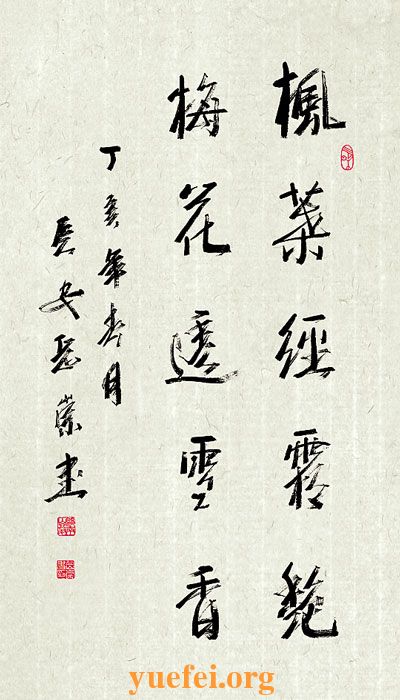 楓葉經霜艷
梅花透雪香
丁亥年春月
長安岳崇書
yuefei.org